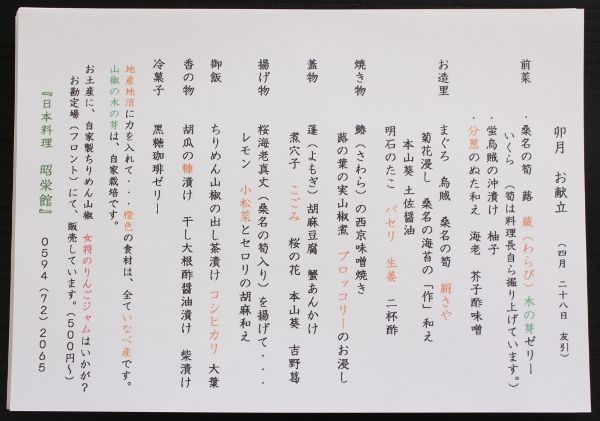 卯月　お献立　（四月　二十八日　友引）
前菜　・桑名の筍　蕗　蕨（わらび）木の芽ゼリー
いくら　（筍は料理長自ら掘り上げています。）
・蛍烏賊の沖漬け　柚子
・分葱のぬた和え　海老　芥子酢味噌
お造里　まぐろ　烏賊　桑名の筍　絹さや
菊花浸し　桑名の海苔の「作」和え
本山葵　土佐醤油
明石のたこ　パセリ　生姜　二杯酢
焼き物　鰆（さわら）の西京味噌焼き
蕗の葉の実山椒煮　ブロッコリーのお浸し
蓋物　蓬（よもぎ）胡麻豆腐　蟹あんかけ
煮穴子　こごみ　桜の花　本山葵　吉野葛
揚げ物　桜海老真丈（桑名の筍入り）を揚げて・・・
レモン　小松菜とセロリの胡麻和え
御飯　ちりめん山椒の出し茶漬け　コシヒカリ　大葉
香の物　胡瓜の糠漬け　干し大根酢醤油漬け　柴漬け
冷菓子　黒糖珈琲ゼリー
地産地消に力を入れて・・・橙色の食材は、全ていなべ産です。
山椒の木の芽は、自家栽培です。
お土産に、自家製ちりめん山椒　女将のりんごジャムはいかが？
お勘定場（フロント）にて、販売しています。（５００円〜）
『日本料理　昭栄館』　０５９４（７２）２０６５